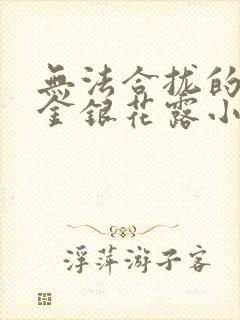 無法合拢的
金銀花露小
浮萍游子客